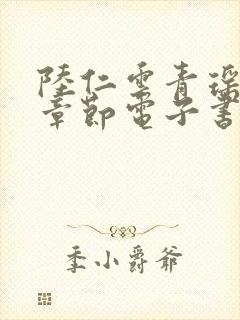 陸仁雲青瑶
章節電子書
季小爵爺